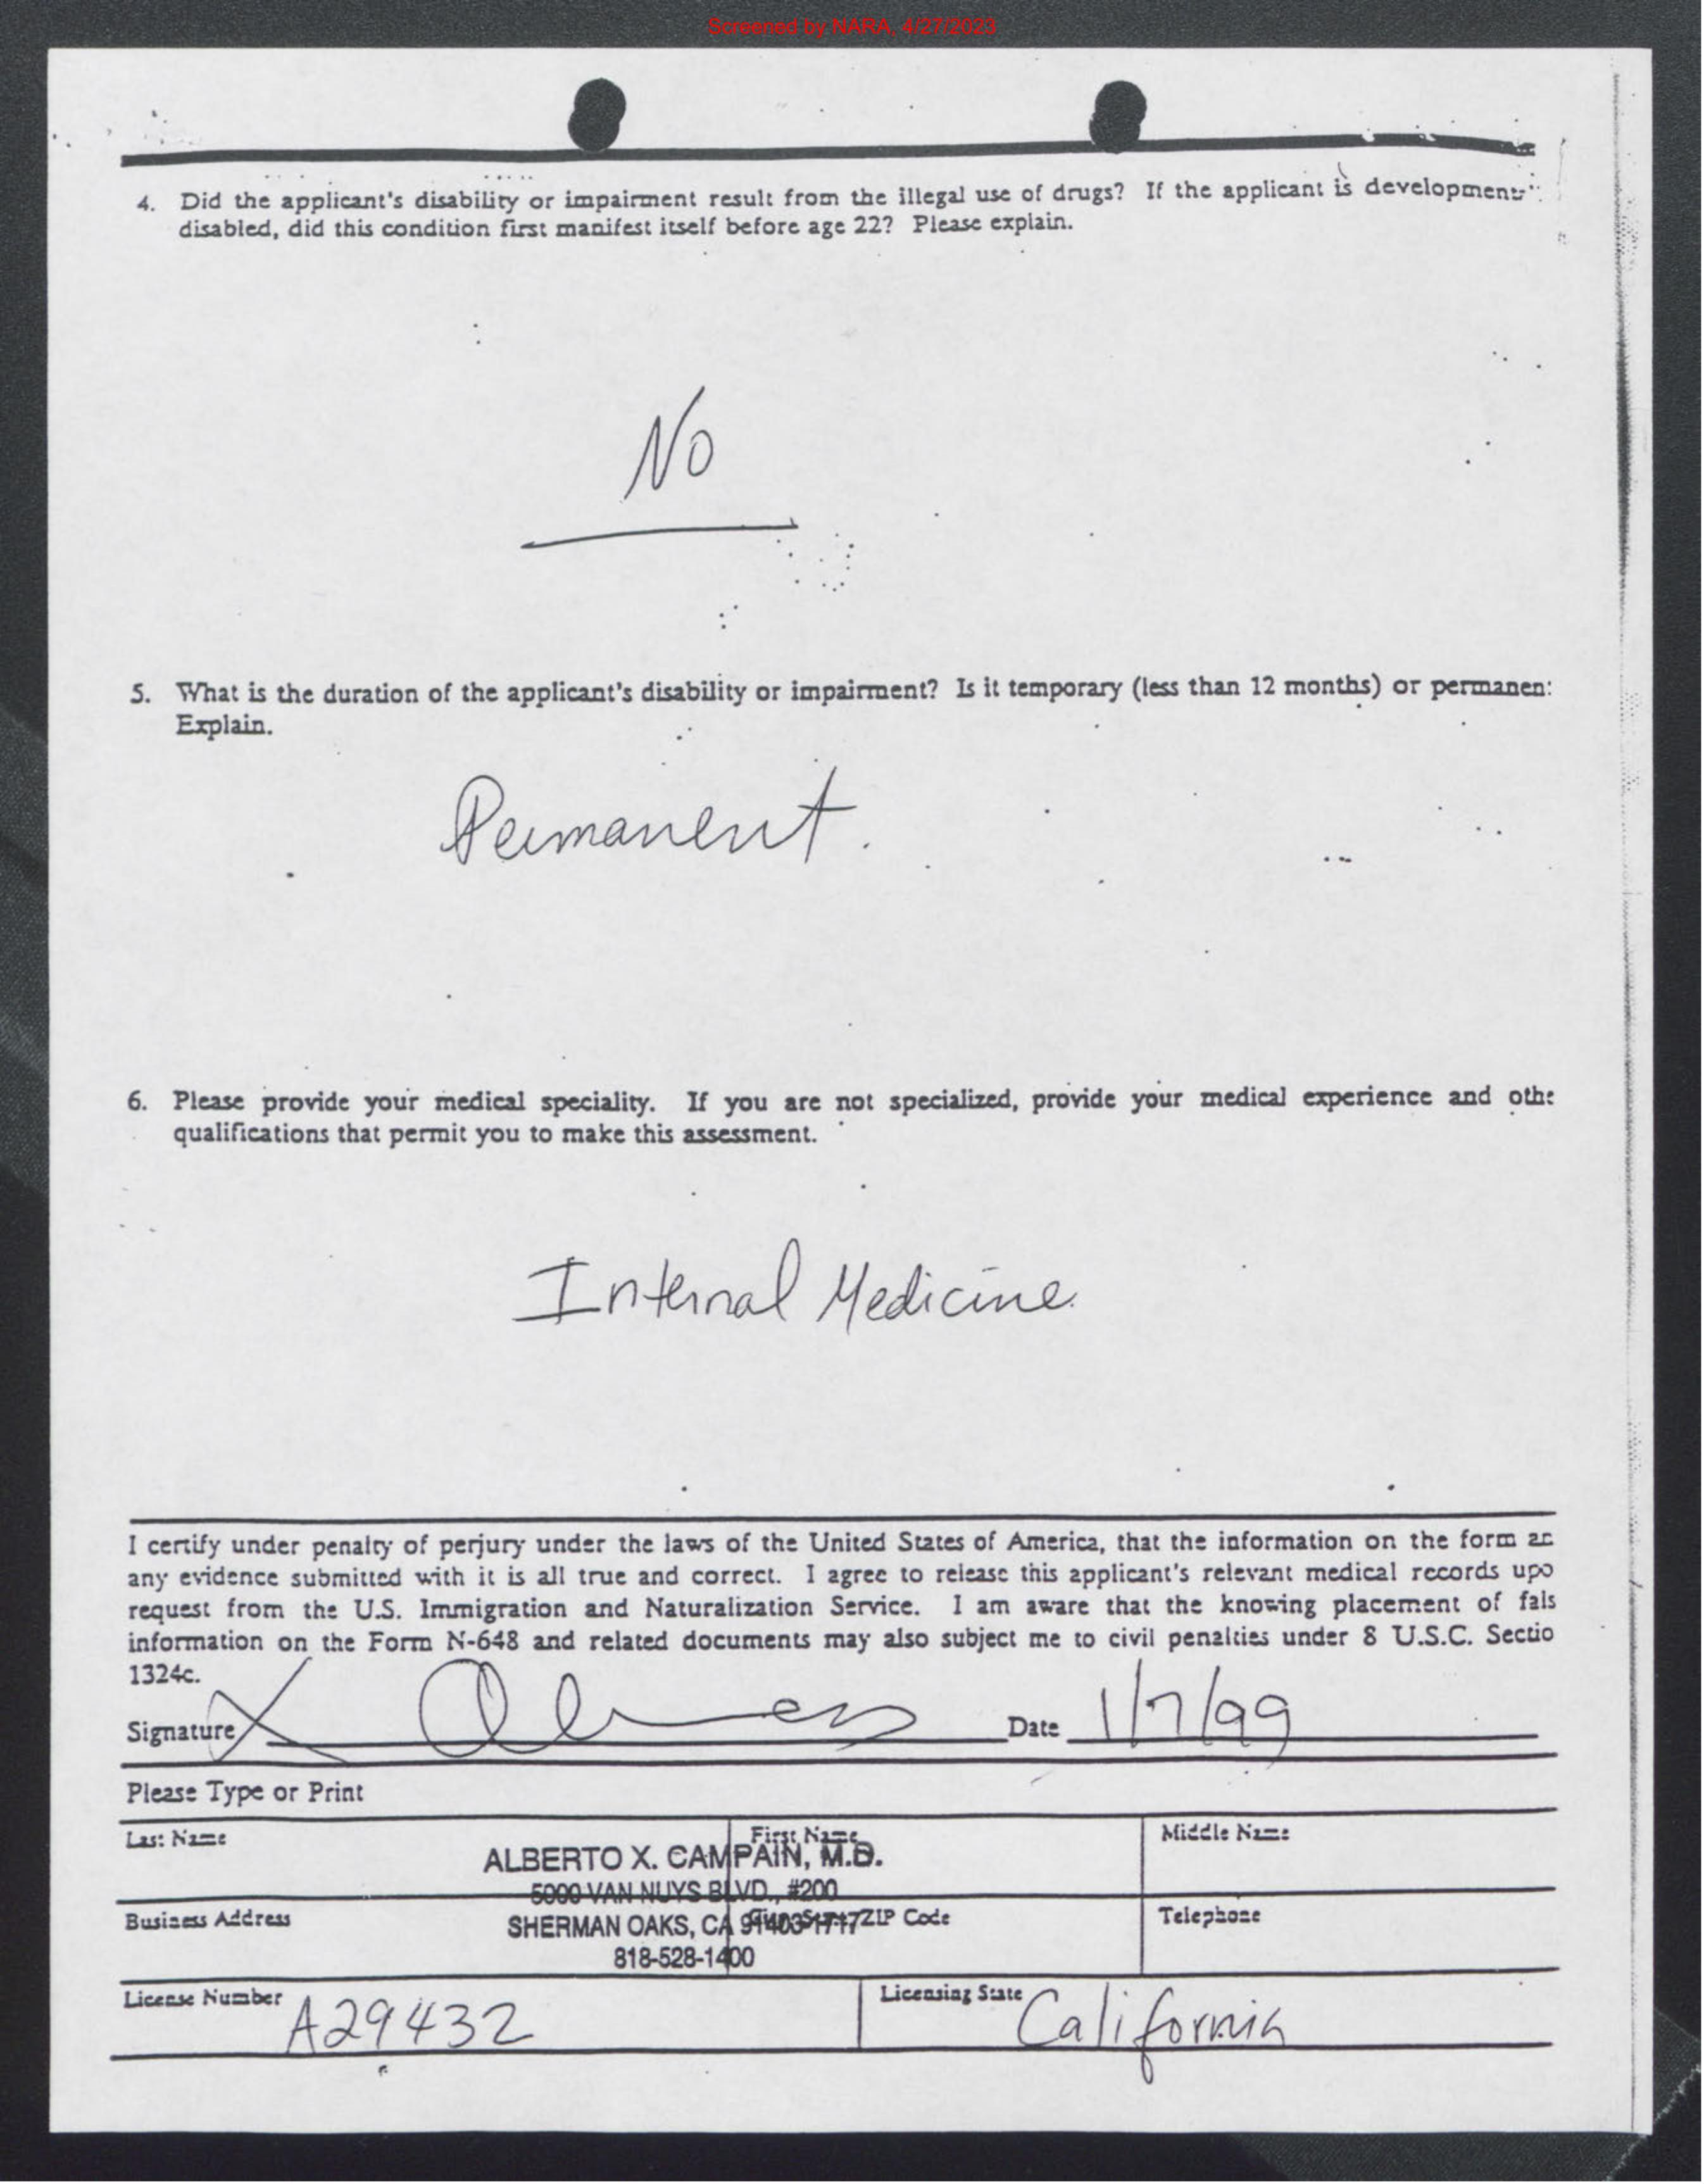 Screened by NARA, 4/27/2023
4. Did the applicant's disability or impairment result from the illegal use of drugs? If the applicant is development
disabled, did this condition first manifest itself before age 22? Please explain.
No
5. What is the duration of the applicant's disability or impairment? Is it temporary (less than 12 months) or permanen
Explain.
Permanent.
6. Please provide your medical speciality. If you are not specialized, provide your medical experience and othe
qualifications that permit you to make this assessment.
Internal Medicine
I certify under penalty of perjury under the laws of the United States of America, that the information on the form an
any evidence submitted with it is all true and correct. I agree to release this applicant's relevant medical records upo
request from the U.S. Immigration and Naturalization Service. I am aware that the knowing placement of fals
information on the Form N-648 and related documents may also subject me to civil penalties under 8 U.S.C. Sectio
1324c.
Signature X Date 1/7/99
Please Type or Print
Last Name First Name Middle Name
ALBERTO X. CAMPAIN, M.D.
5000 VAN NUYS BLVD., #200
Business Address ZIP Code Telephone
SHERMAN OAKS, CA 91403-1717
818-528-1400
License Number A29432 Licensing State California